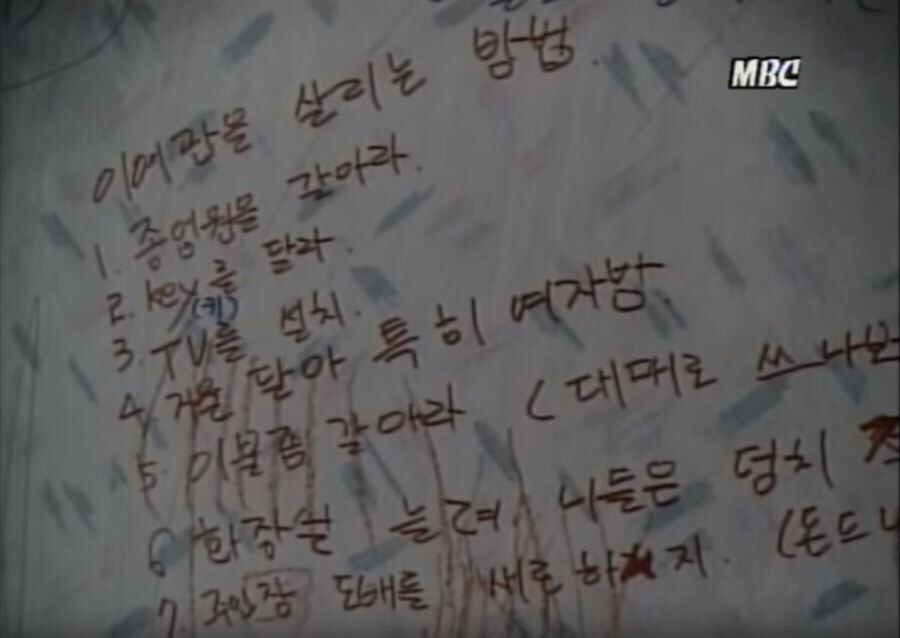 MBC
이여관을 살리는 방법.
1. 종업원을 갈아라.
2. key를 달라.
(키)
3. TV를 설치.
4. 거울 달아 특히 여자방.
5. 이불좀 갈아라 (대매로 쓰나보
6 화장실 늘려 니들은 덩치
7. 주인장 도배를 새로 하지. (돈드니